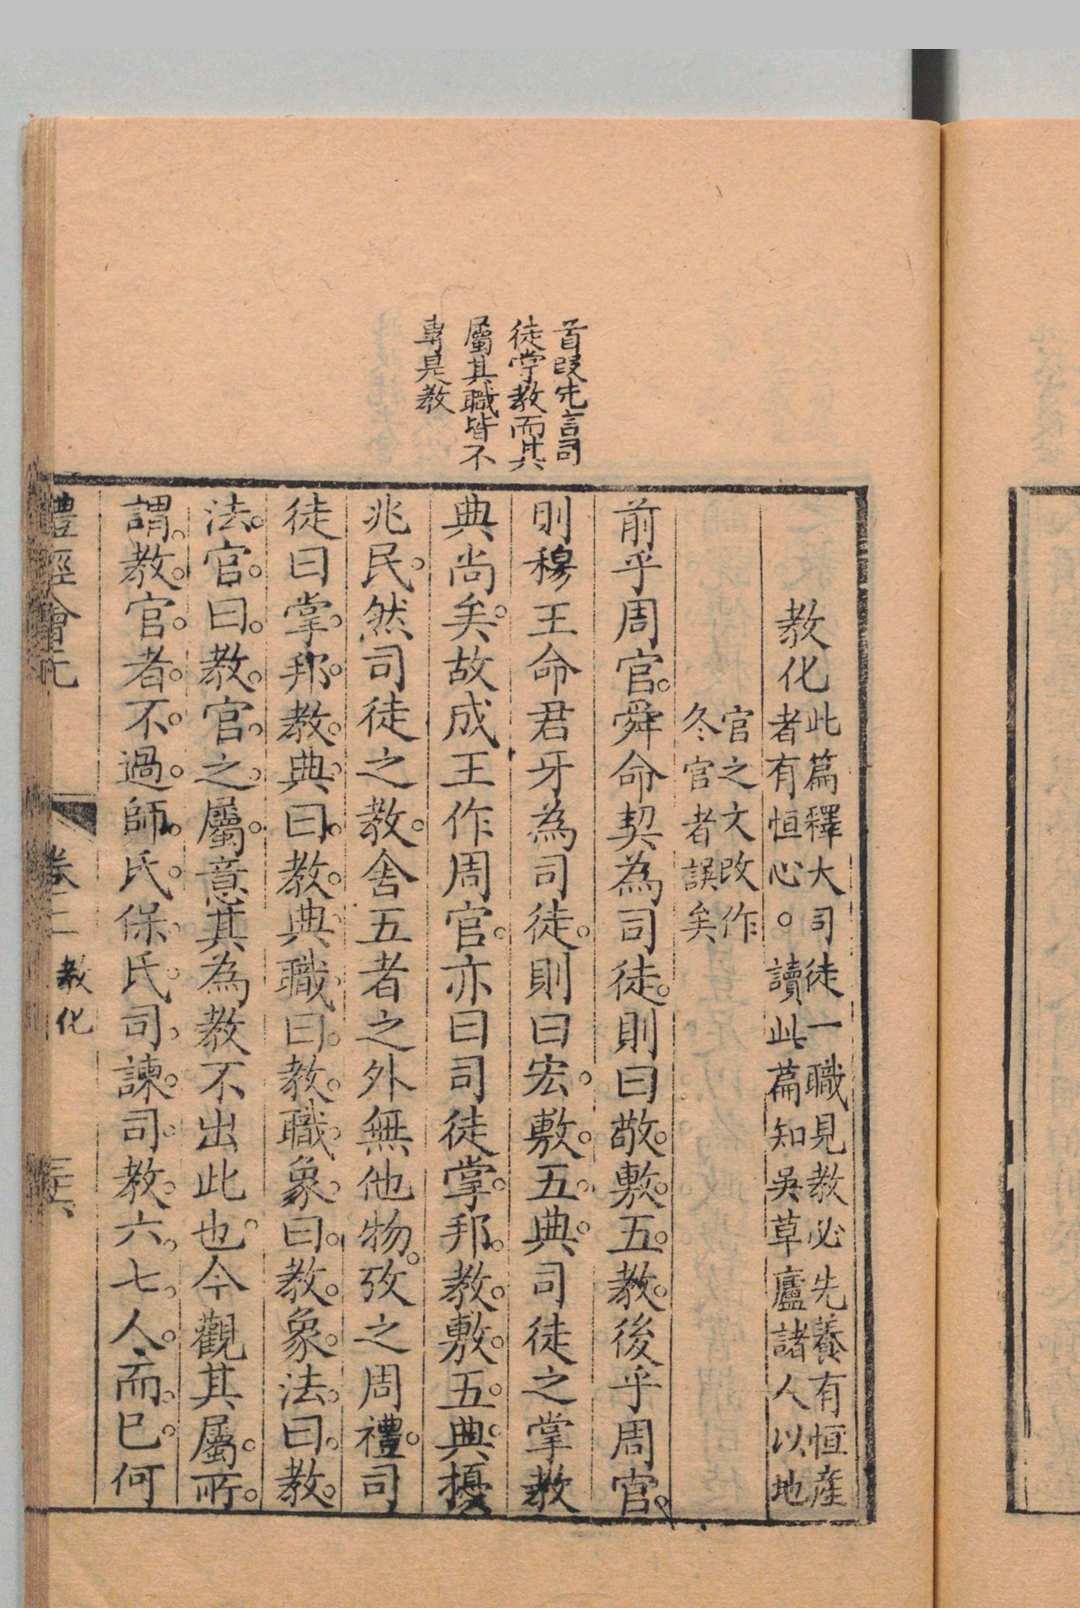 首段先言司
徒掌教而其
屬其職皆不
專是教
教化
此篇釋大司徒一職見教必先養有恒產
者有恒心。讀此篇知吳草廬諸人以地
官之文改作
冬官者誤矣
前乎周官。舜命契為司徒。則曰敬敷五教。後乎周官。
則穆王命君牙為司徒。則曰宏敷五典。司徒之掌教
典尚矣。故成王作周官。亦曰司徒掌邦教。敷五典。擾
兆民。然司徒之教。舍五者之外無他物。攷之周禮。司
徒曰掌邦教。典曰教典。職曰教職。象曰教象。法曰教
法。官曰教官。之屬。意其為教不出此也。今觀其屬。所
謂教官者。不過師氏。保氏。司諫。司教。六七人而已。何
禮經會元
卷二
教化
三六